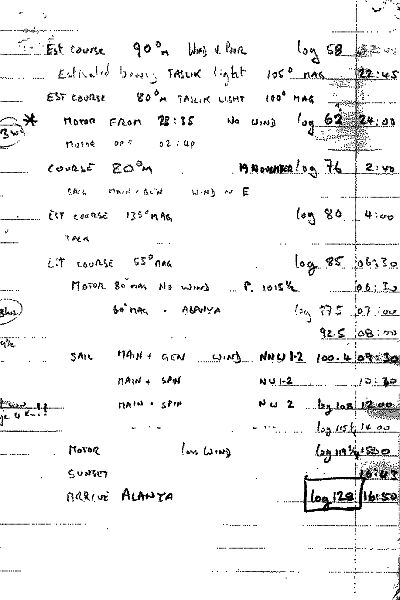 Est course 90°M Wind v. Poor log 58
Estimated bearing TASLIK light 105° MAG 22:45
EST COURSE 80°M TASLIK LIGHT 100° MAG
* MOTOR FROM 23:35 NO WIND log 62 24:00
MOTOR OFF 02:40
COURSE 80°M 19 NOVEMBER log 76 2:40
SAIL MAIN + GEN WIND E
EST COURSE 135° MAG log 80 4:00
TACK
EST COURSE 55° MAG log 85 06:30
MOTOR 80° MAG NO WIND P. 1015½ 06:30
80° MAG - ALANYA log 87.5 07:00
92.5 08:00
SAIL MAIN + GEN WIND NNW 1-2 100.4 09:30
MAIN + SPIN NW 1-2 10:30
MAIN + SPIN NW 2 log 108 12:00
log 115½ 14:00
MOTOR WIND log 119½ 15:00
SUNSET 16:43
ARRIVE ALANYA log 128 16:50